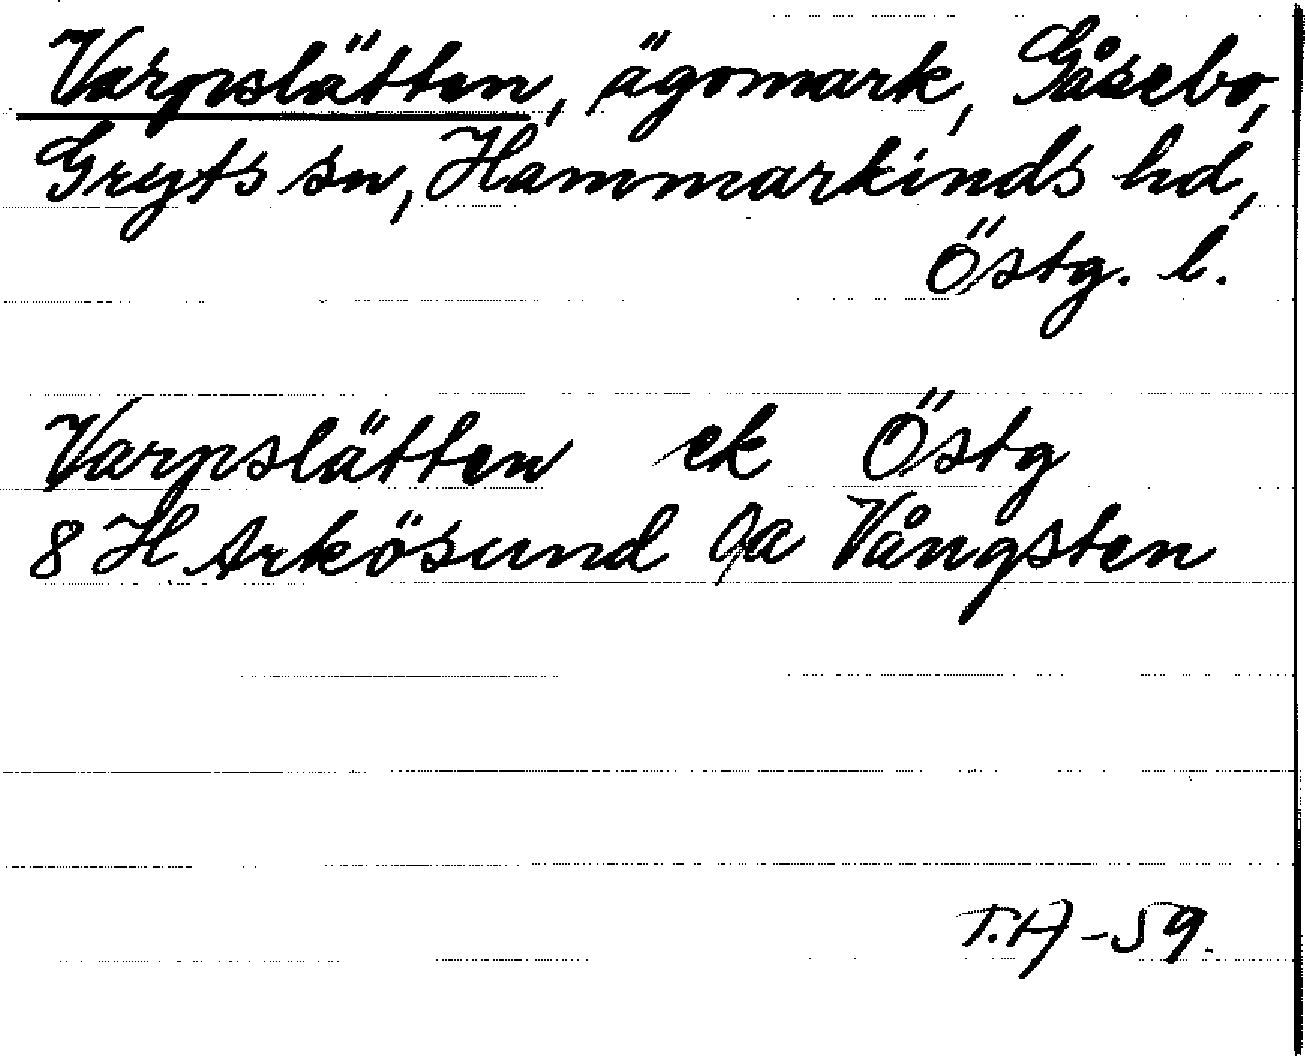 Varpslätten, ägomark, Gåsebo,
Gryts sn, Hammarkinds hd,
Östg. l.
Varpslätten ek Östg
8 H Arkösund 9a Vångsten
T.A -59.